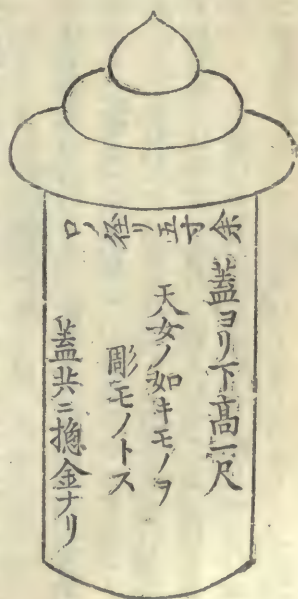 口ノ径リ五寸余
蓋ヨリ下高一尺
天女ノ如キモノヲ
彫モノトス
蓋共ニ摠金ナリ